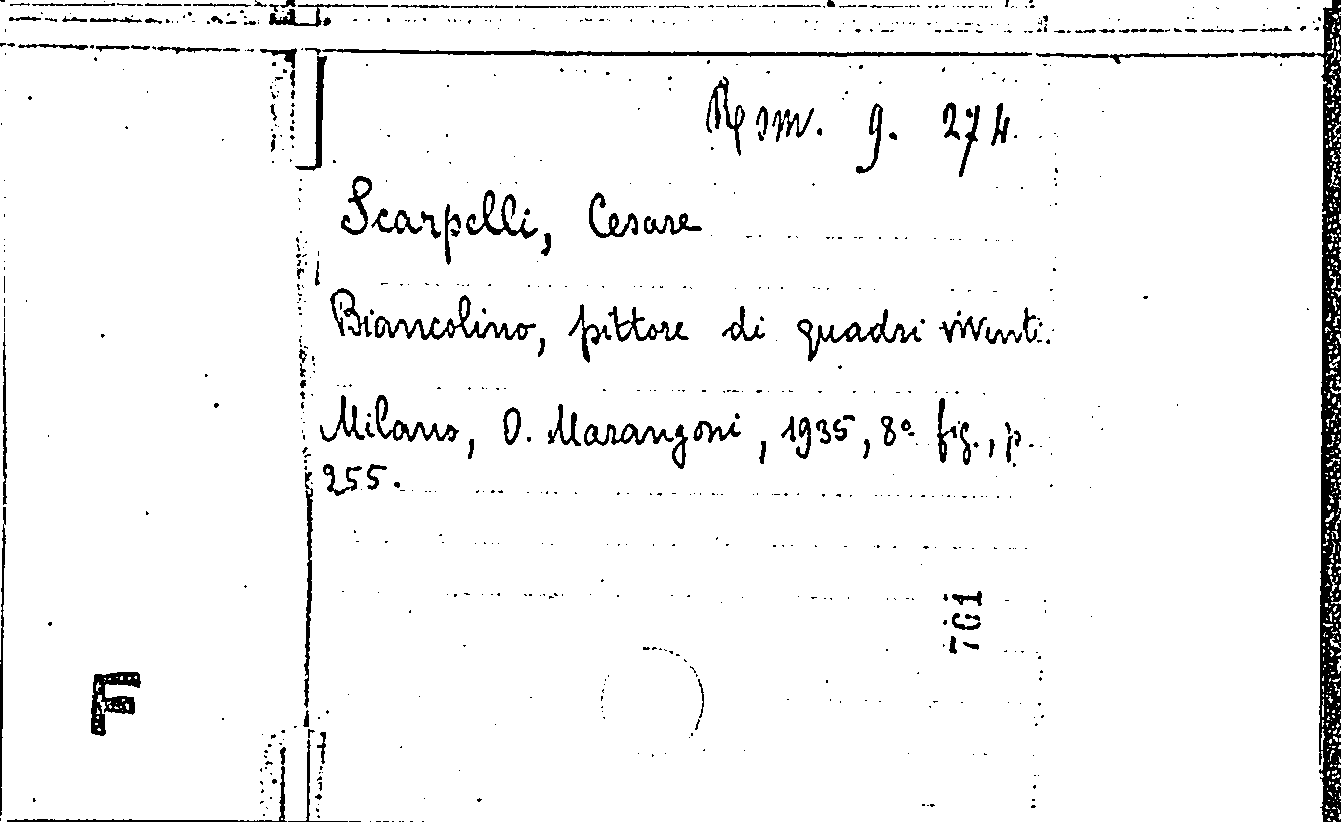 Rom. g. 274
Scarpelli, Cesare
Biancolino, pittore di quadri viventi.
Milano, O. Marangoni, 1935, 8º fig., p.
255.
701
F